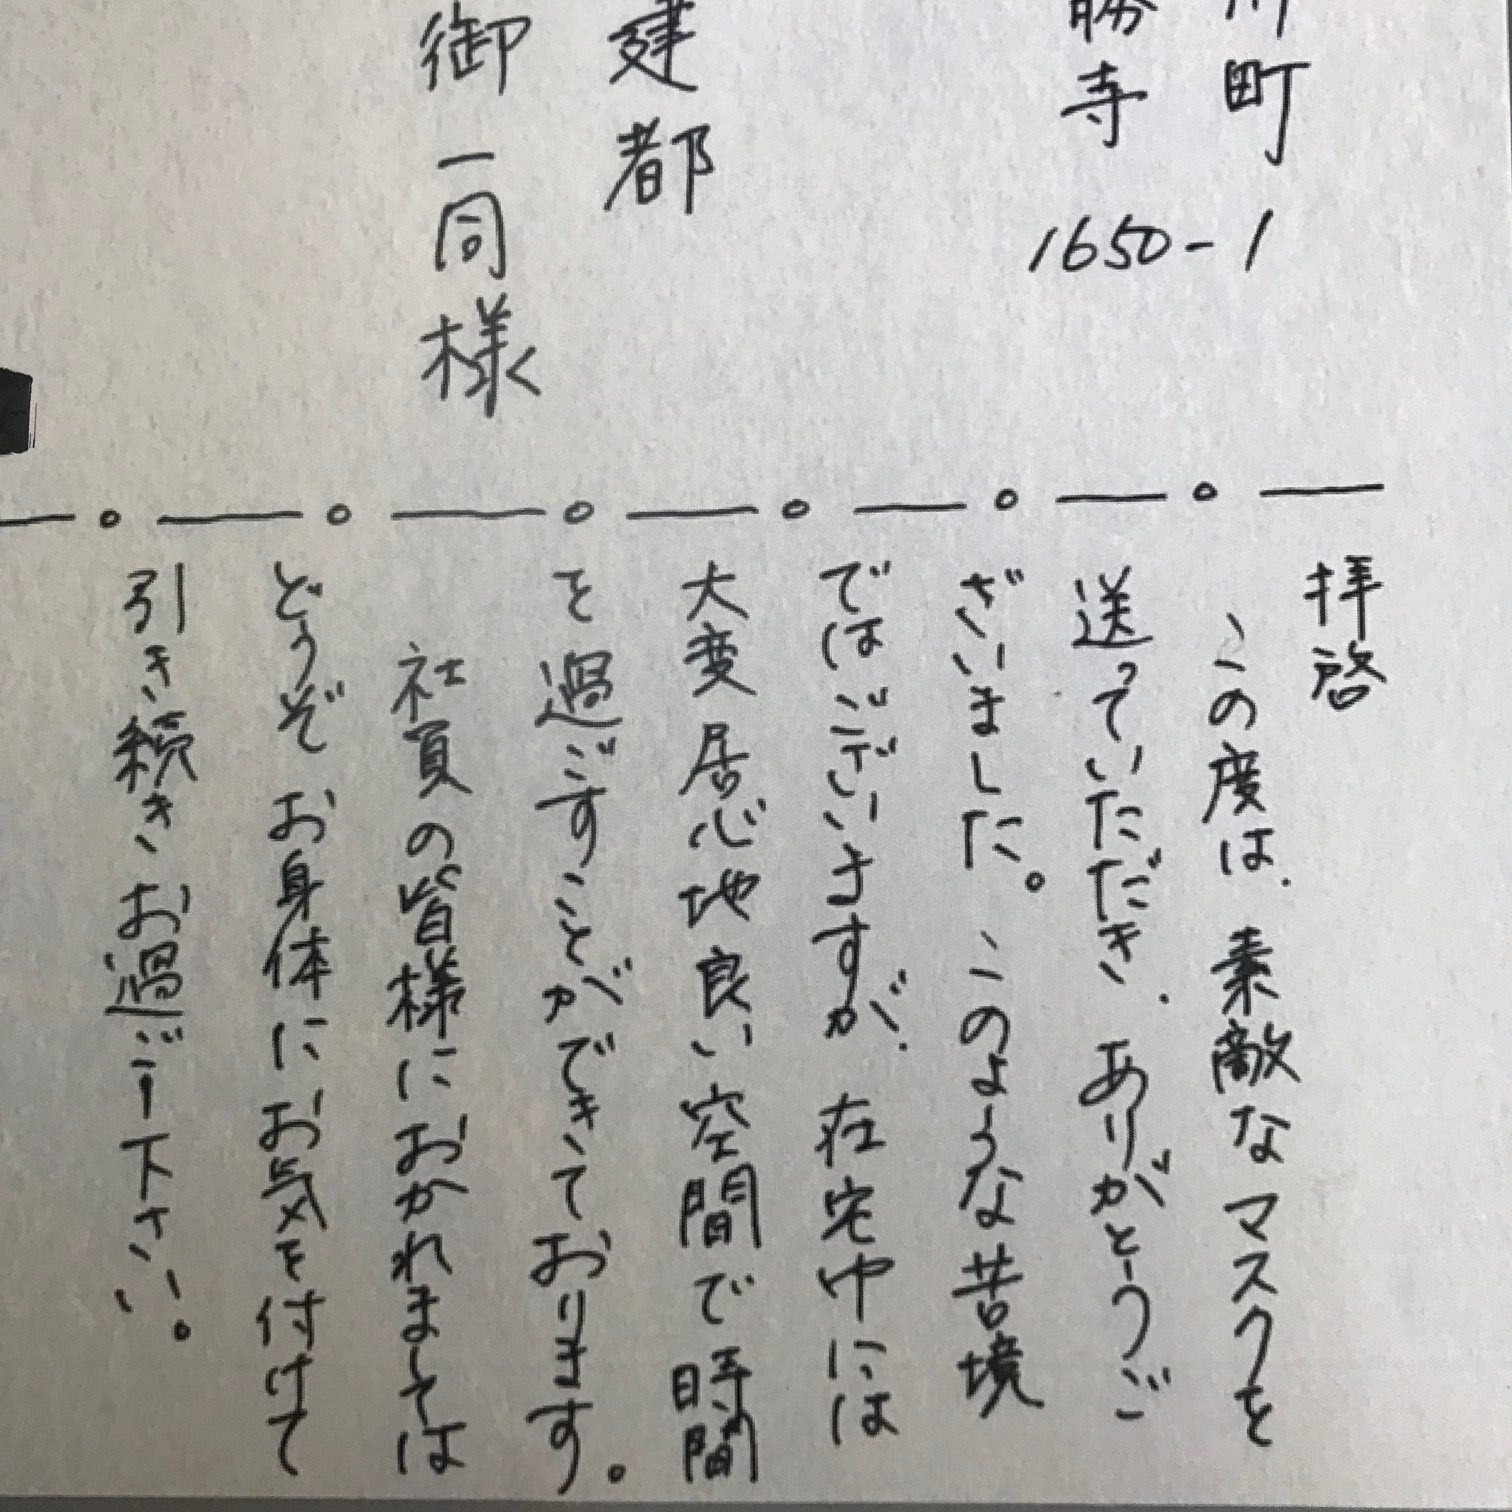 川町
勝寺 1650-1
建都
御一同様
拝啓
この度は、素敵なマスクを
送っていただき、ありがとうご
ざいました。このような苦境
ではございますが、在宅中には
大変居心地良い空間で時間
を過ごすことができております。
社員の皆様におかれましては
どうぞお身体にお気を付けて
引き続きお過ごし下さい。